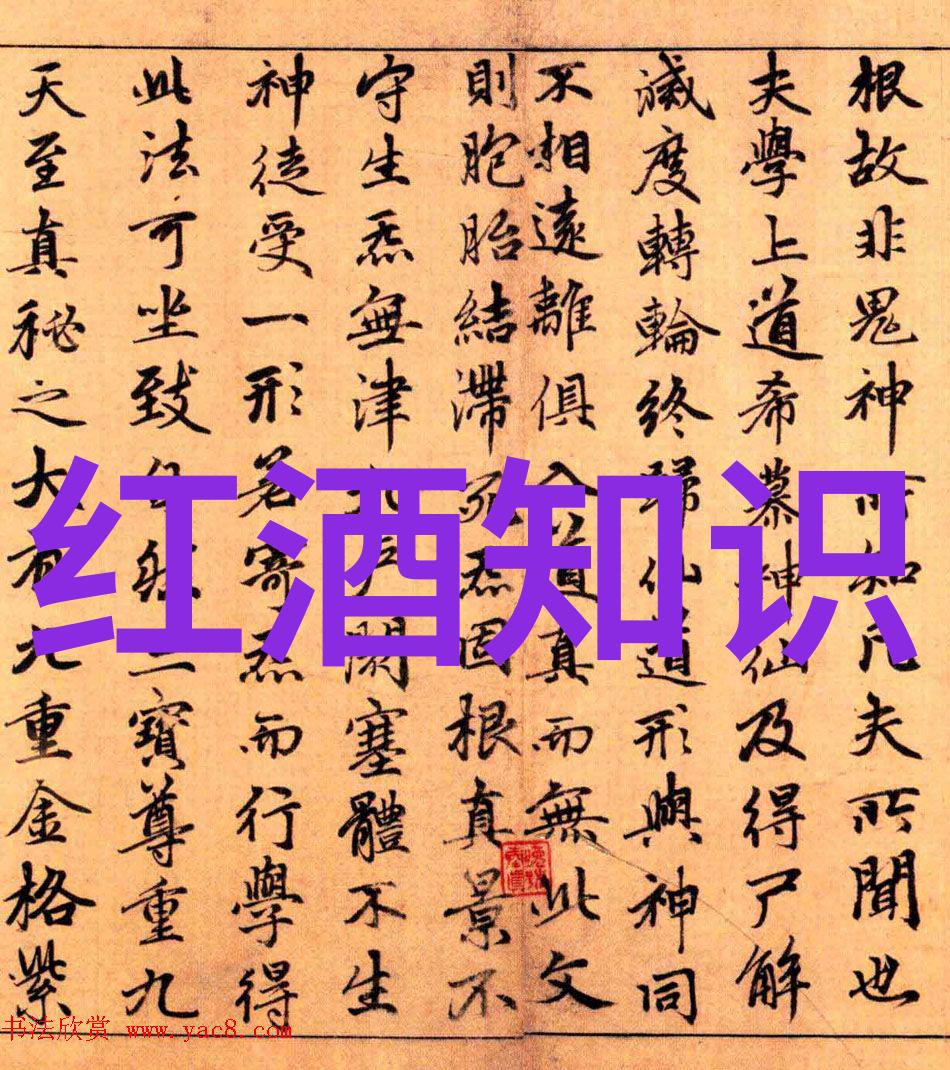 根故非鬼神所知凡夫所聞也
夫學上道希慕神仙及得尸解
滅度轉輪終歸仙道形與神同
不相遠離俱入道真而無此文
則胞胎結滯死炁固根真景不
守生炁無津九戶閇塞體不生
神徒受一形若寄炁而行學得
此法可坐致自然三寶尊重九
天至真秘之大有九重金格紫
红酒知识
书法欣赏 www.yac8.com